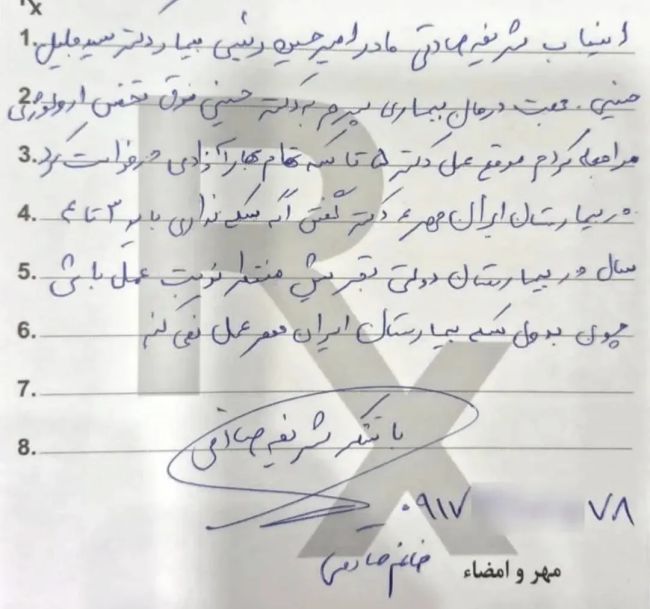 Rx
1. اینجانب شریفه صادقی مادر امیرحسین رئیسی بیمار دکتر سید جلیل
2. حسینی. جهت درمان بیماری پسرم به دکتر حسینی فوق تخصص ارولوژی
3. مراجعه کردم موقع عمل دکتر ۵ تا سکه تمام بهار آزادی درخواست کرد
4. در بیمارستان ایران مهر و دکتر گفتن اگه سکه نداری باید ۳ تا ۴
5. سال در بیمارستان دولتی تجریش منتظر نوبت عمل باشی
6. چون بدون سکه بیمارستان ایران مهر عمل نمی کنم
7.
8. با تشکر شریفه صادقی
۰۹۱۷ ۷۸
خانم صادقی
مهر و امضاء